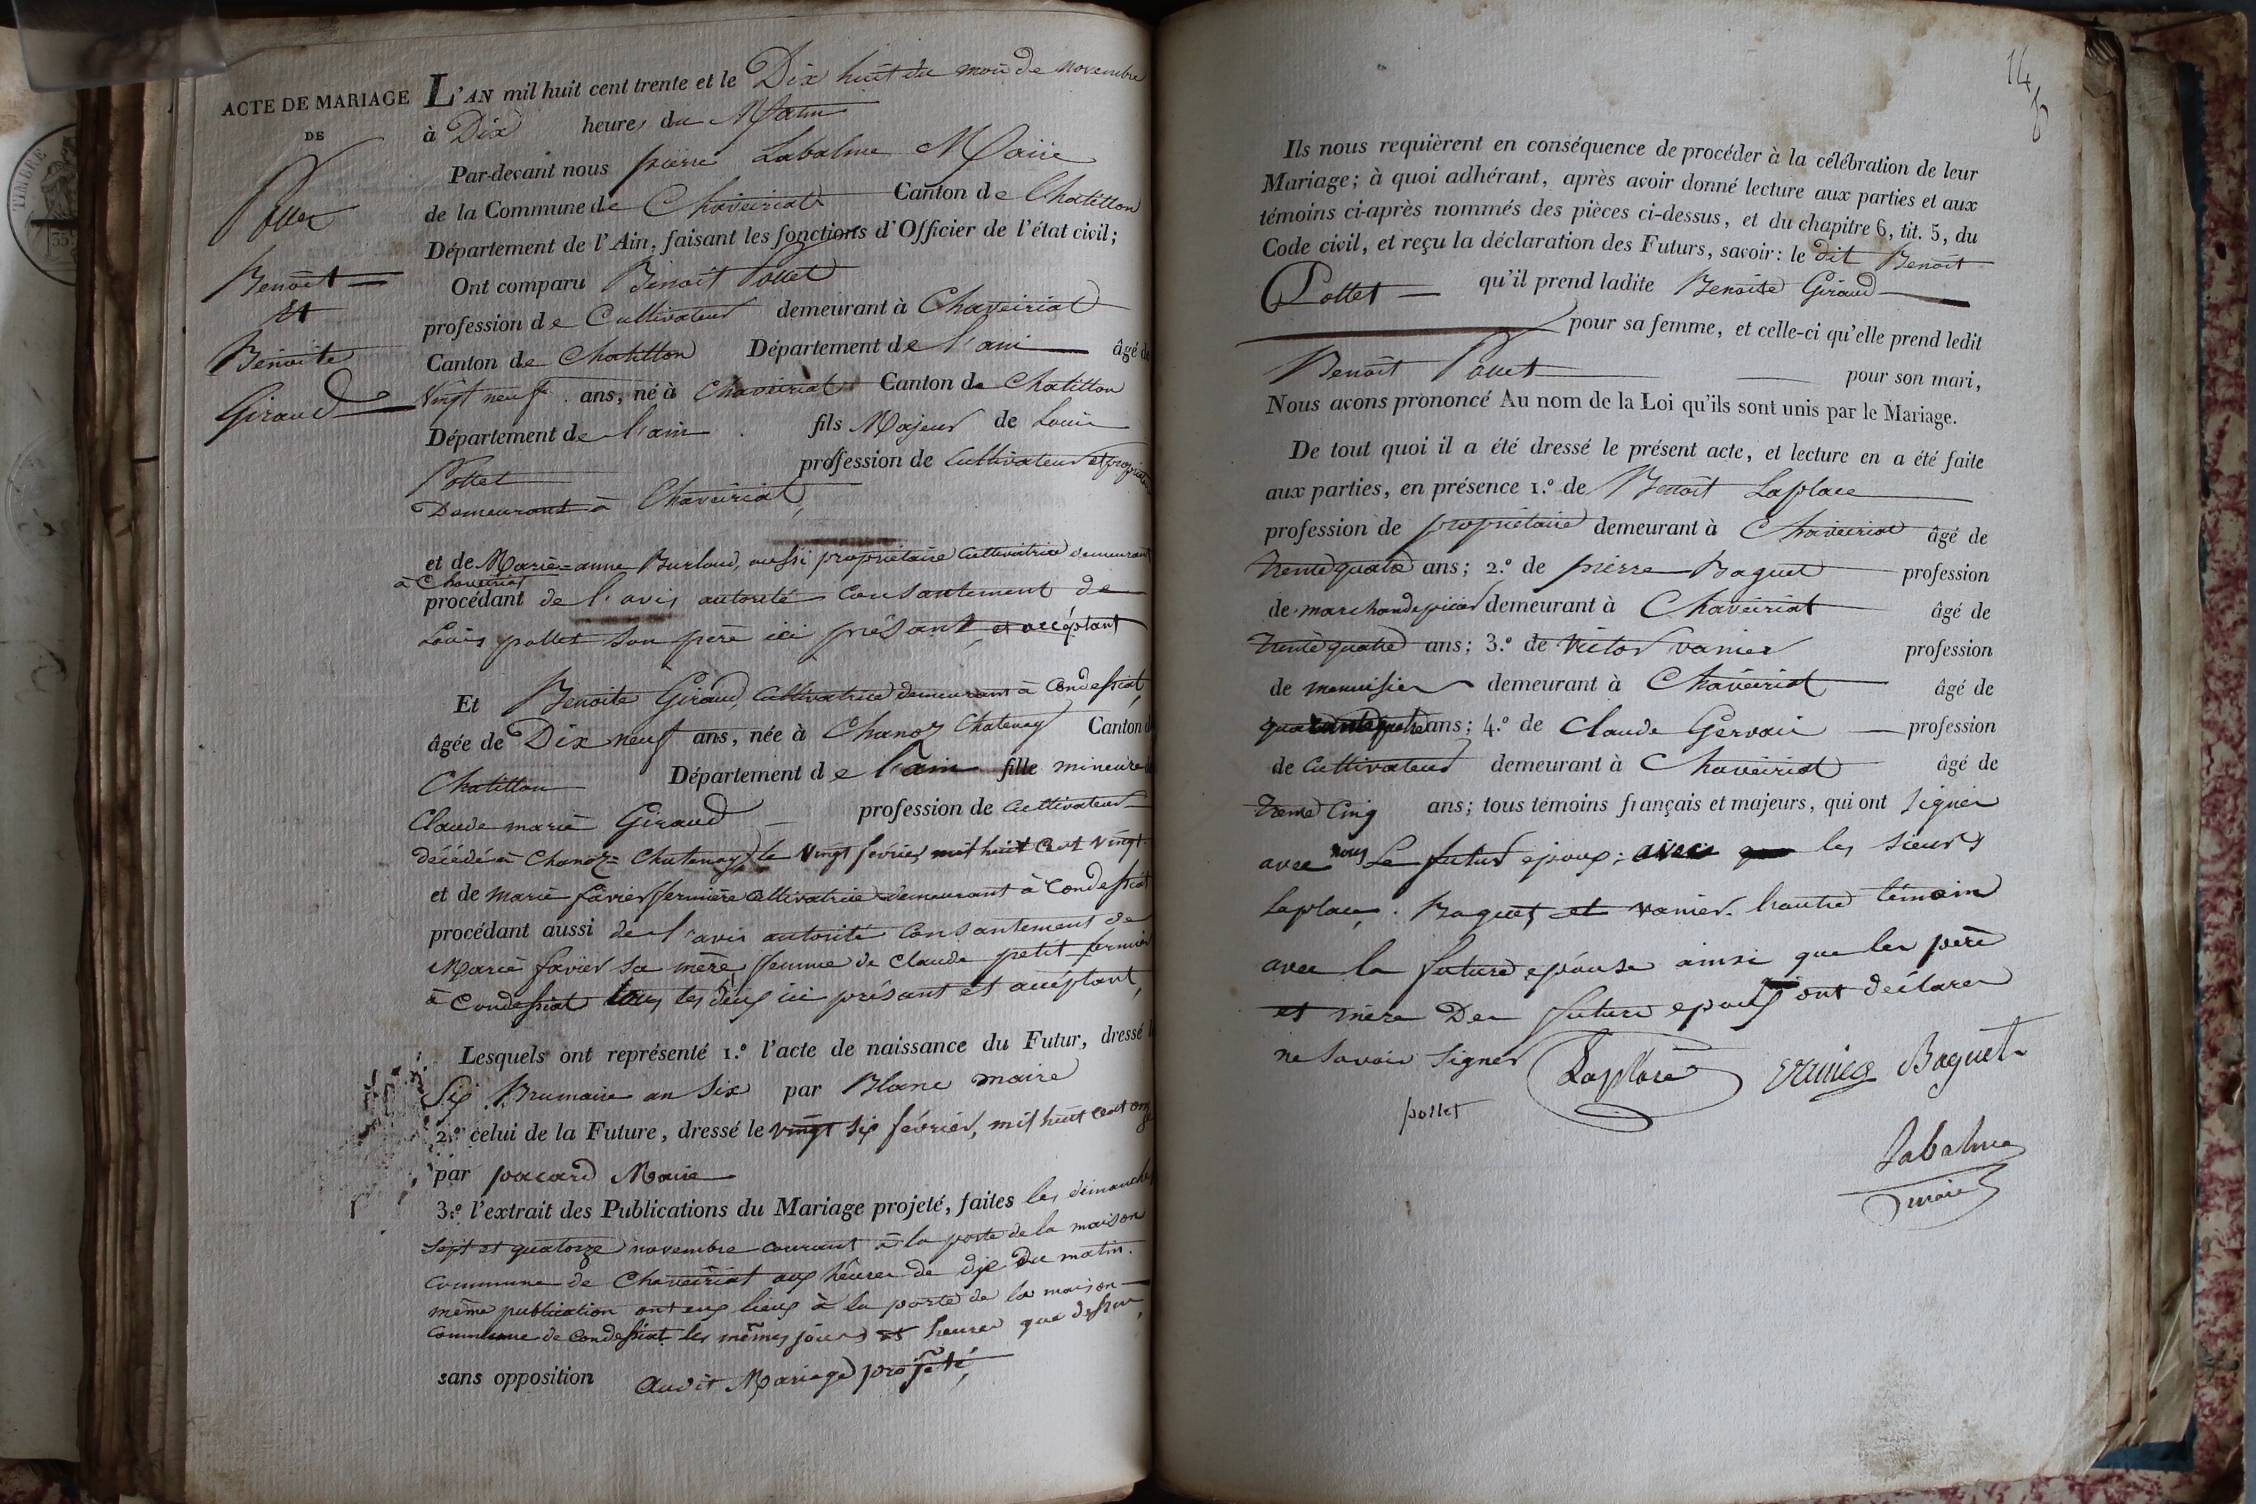 ACTE DE MARIAGE
DE
Pollet
Benoît
et
Benoite
Giraud
L'AN mil huit cent trente et le Dix huit du mois de novembre
à Dix heures du Matin
Par-devant nous pierre Labalme Maire
de la Commune de Chaveiriat Canton de Chatillon
Département de l'Ain, faisant les fonctions d'Officier de l'état civil;
Ont comparu Benoit Pollet
profession de Cultivateur demeurant à Chaveiriat
Canton de Chatillon Département de l'ain âgé de
Vingt neuf ans, né à Chaveiriat Canton de Chatillon
Département de l'ain fils Majeur de Louis
Pollet profession de Cultivateur et propriétaire
Demeurant à Chaveiriat,
et de Marie=anne Burloud, aussi propriétaire Cultivatrice demeurant
à Chaveiriat
procédant de l'avis autorité consantement de
Louis pollet son père ici présant, et accéptant
Et Benoite Giraud, Cultivatrice demeurant à Condessiat,
âgée de Dix neuf ans, née à Chanoz Chatenay Canton de
Chatillon Département de l'ain fille mineure de
Claude marie Giraud profession de Cultivateur
décédé à Chanoz=Chatenay le vingt février mil huit cent vingt
et de marie favier fermière Cultivatrice demeurant à Condessiat
procédant aussi de l'avis autorité consantement de
Marie favier sa mère, femme de Claude petit fermier
à Condessiat tous les deux ici présant et accéptant,
Lesquels ont représenté 1.º l'acte de naissance du Futur, dressé le
Six Brumaire an Six par Blanc maire
2.º celui de la Future, dressé le vingt six février, mil huit cent onze
par pacard Maire
3.º l'extrait des Publications du Mariage projeté, faites les dimanches
sept et quatorze novembre courant à la porte de la maison
commune de Chaveiriat aux heures de dix du matin.
même publication ont eux lieux à la porte de la maison
commune de Condessiat les mêmes jours et heures que dessus,
sans opposition audit Mariage projété,
14
Ils nous requièrent en conséquence de procéder à la célébration de leur
Mariage; à quoi adhérant, après avoir donné lecture aux parties et aux
témoins ci-après nommés des pièces ci-dessus, et du chapitre 6, tit. 5, du
Code civil, et reçu la déclaration des Futurs, savoir: le dit Benoit
Pollet qu'il prend ladite Benoite Giraud
pour sa femme, et celle-ci qu'elle prend ledit
Benoît Pollet pour son mari,
Nous avons prononcé Au nom de la Loi qu'ils sont unis par le Mariage.
De tout quoi il a été dressé le présent acte, et lecture en a été faite
aux parties, en présence 1.º de Benoît Laplace
profession de propriétaire demeurant à Chaveiriat âgé de
Trente quatre ans; 2.º de pierre Baguet profession
de marchand epicier demeurant à Chaveiriat âgé de
Trente quatre ans; 3.º de Victor vanier profession
de menuisier demeurant à Chaveiriat âgé de
quarante quatre ans; 4.º de Claude Gervais profession
de Cultivateur demeurant à Chaveiriat âgé de
Trente Cinq ans; tous témoins français et majeurs, qui ont Signér
avec nous Le futur epoux; avec les sieurs
Laplace, Baguet, et vanier. l'autre témoin
avec la future epouse ainsi que les père
et mère Des future epoux ont déclarer
ne savoir signer Laplace vanier Baguet
pollet
Labalme
maire